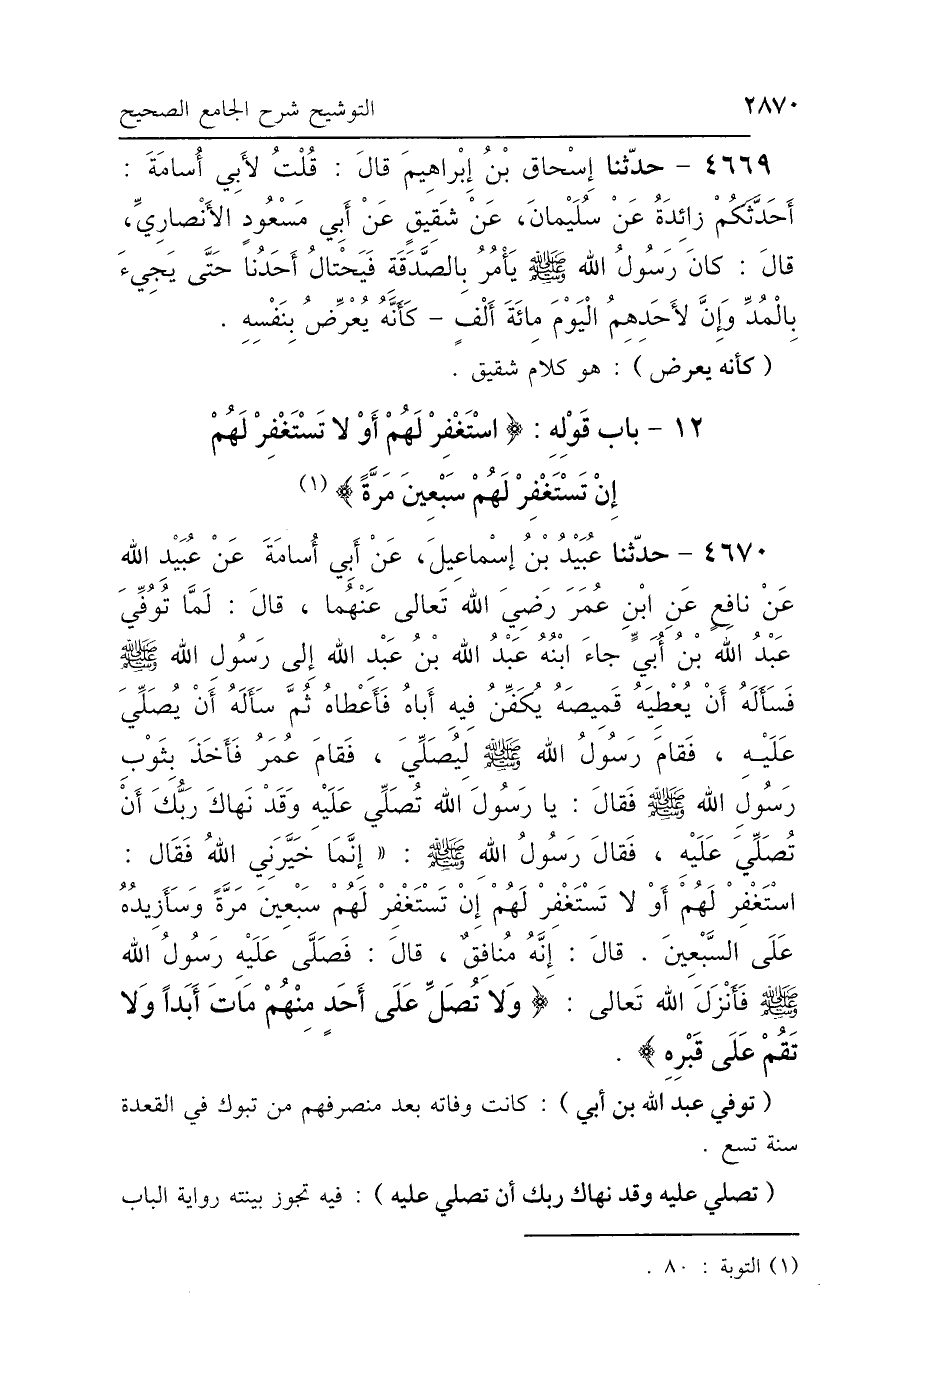 ٢٨٧٠ التوشيح شرح الجامع الصحيح
٤٦٦٩ – حدّثنا إسْحاق بْنُ إبْراهِيمَ قالَ : قُلْتُ لأبي أُسامَةَ :
أَحَدَّثَكُمْ زائِدَةُ عَنْ سُلَيْمانَ، عَنْ شَقِيقٍ عَنْ أبي مَسْعُودٍ الأنْصارِيِّ،
قالَ : كانَ رَسُولُ الله ﷺ يَأْمُرُ بِالصَّدَقَةِ فَيَحْتالُ أَحَدُنا حَتَّى يَجِيءَ
بِالْمُدِّ وَإنَّ لأَحَدِهِمُ الْيَوْمَ مائَةَ أَلْفٍ – كَأَنَّهُ يُعْرِّضُ بِنَفْسِهِ .
( كأنه يعرض ) : هو كلام شقيق .
١٢ – باب قَوْلِهِ : ﴿ اسْتَغْفِرْ لَهُمْ أَوْ لا تَسْتَغْفِرْ لَهُمْ
إِنْ تَسْتَغْفِرْ لَهُمْ سَبْعِينَ مَرَّةً ﴾ (١)
٤٦٧٠ – حدّثنا عُبَيْدُ بْنُ إسْماعِيلَ، عَنْ أَبِي أُسامَةَ عَنْ عُبَيْدِ الله
عَنْ نافِعٍ عَنِ ابْنِ عُمَرَ رَضِيَ الله تَعالى عَنْهُما ، قالَ : لَمَّا تُوُفِّيَ
عَبْدُ الله بْنُ أُبَيٍّ جاءَ ابْنُهُ عَبْدُ الله بْنُ عَبْدِ الله إلى رَسُولِ الله ﷺ
فَسَأَلَهُ أَنْ يُعْطِيَهُ قَمِيصَهُ يُكَفِّنُ فِيهِ أَباهُ فَأَعْطاهُ ثُمَّ سَأَلَهُ أَنْ يُصَلِّيَ
عَلَيْهِ ، فَقامَ رَسُولُ الله ﷺ لِيُصَلِّيَ ، فَقامَ عُمَرُ فَأَخَذَ بِثَوْبِ
رَسُولِ الله ﷺ فَقالَ : يا رَسُولَ الله تُصَلِّي عَلَيْهِ وَقَدْ نَهاكَ رَبُّكَ أَنْ
تُصَلِّيَ عَلَيْهِ ، فَقالَ رَسُولُ الله ﷺ : « إِنَّمَا خَيَّرَنِي اللهُ فَقَال :
اسْتَغْفِرْ لَهُمْ أَوْ لا تَسْتَغْفِرْ لَهُمْ إِنْ تَسْتَغْفِرْ لَهُمْ سَبْعِينَ مَرَّةً وَسَأَزِيدُهُ
عَلَى السَّبْعِينَ . قالَ : إِنَّهُ مُنافِقٌ ، قالَ : فَصَلَّى عَلَيْهِ رَسُولُ الله
ﷺ فَأَنْزَلَ الله تَعالى : ﴿ وَلا تُصَلِّ عَلَى أَحَدٍ مِنْهُمْ مَاتَ أَبَداً وَلا
تَقُمْ عَلَى قَبْرِهِ ﴾ .
( توفي عبد الله بن أبي ) : كانت وفاته بعد منصرفهم من تبوك في القعدة
سنة تسع .
( تصلي عليه وقد نهاك ربك أن تصلي عليه ) : فيه تجوز بينته رواية الباب
(١) التوبة : ٨٠ .